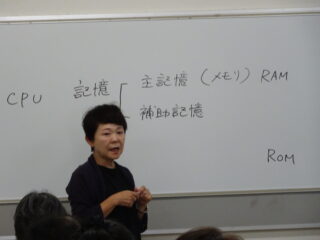 CPU 記憶 主記憶 (メモリ) RAM
補助記憶
ROM